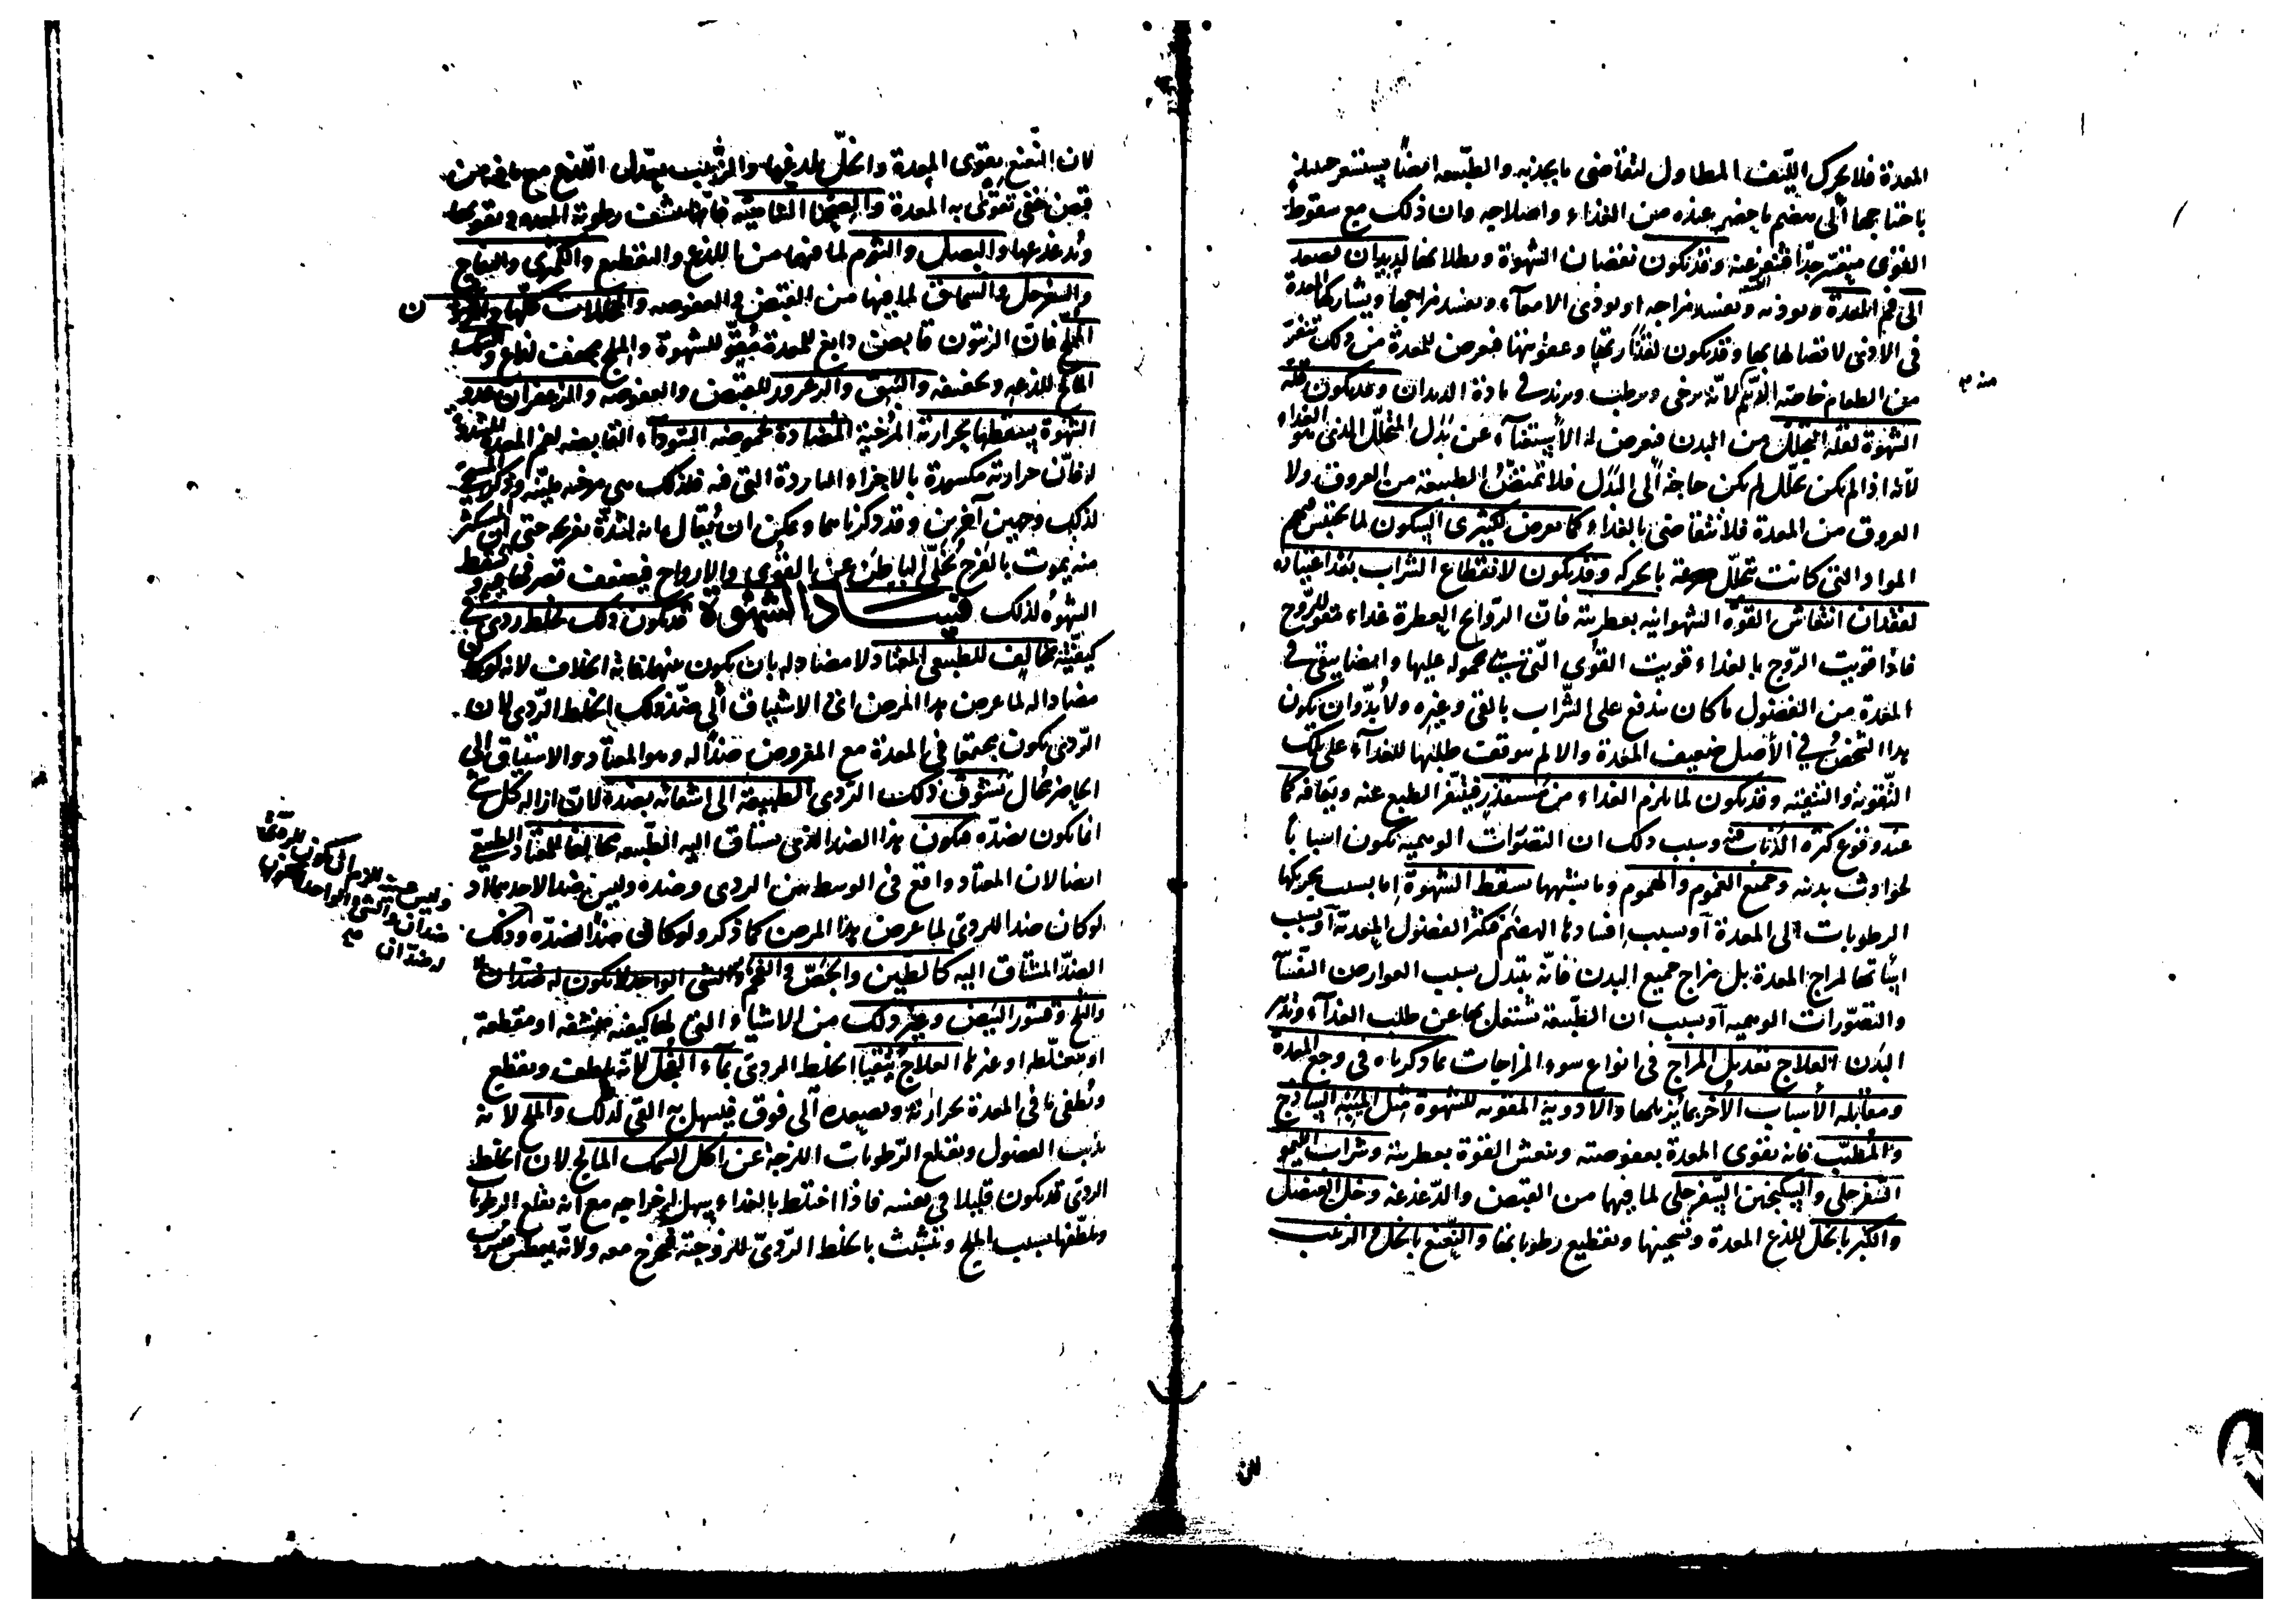 المعدة فلا يحرك الليف المطاول لتقاضى ما يجذبه والطبيعه ايضا يستشعر حينئذ
باحتياجها الى هضم ما حضر عنده من الغذاء واصلاحه وان ذلك مع سقوط
القوى متعسر جدا فتنفر عنه وقد يكون نقصان الشهوة وبطلانها لديدان تصعد
الى فم المعدة وتوذيه وتفسد مزاجه او توذى الامعاء وتفسد مزاجها ويشاركها المعدة
فى الاذى لاتصالها بها وقد يكون لقذارتها وعفونتها فيعرض للمعدة من ذلك تنفر
من الطعام خاصة الدسم لانه يرخى ويرطب ويزيد فى مادة الديدان وقد يكون قلة
منه
الشهوة لقلة التحلل من البدن فيعرض له الاستغناء عن بدل المتحلل الذى هو الغذاء
لانه اذا لم يكن تحلل لم يكن حاجة الى البدل فلا تمتص الطبيعة من العروق ولا
العروق من المعدة فلا تتقاضى بالغذاء كما يعرض لكثيرى السكون لما يحتبس فيهم
المواد التى كانت تتحلل بالحركه وقد يكون لانقطاع الشراب بعد اعتياده
لفقدان انتعاش القوة الشهوانيه بعطريته فان الروايح العطرة غذاء مقو للروح
فاذا قويت الروح بالغذاء قويت القوى التى محموله عليها وايضا يبقى فى
المعدة من الفضول ما كان يندفع على الشراب بالقى وغيره ولا بد وان يكون
هذا الشخص فى الاصل ضعيف المعدة والا لم يتوقف طلبها للغذاء على تلك
التقوية والتنقيه وقد يكون لما يلزم الغذاء من مستقذر فيتنفر الطبع عنه ويعافه كما
عند وقوع كثرة الذباب فيه وسبب ذلك ان التصورات الوهميه تكون اسبابا
لحوادث بدنه وجميع الغموم والهموم وما يشبهها يسقط الشهوة اما بسبب تحريكها
الرطوبات الى المعدة او بسبب افسادها الهضم فتكثر الفضول المعديه او بسبب
اثباتها لمزاج المعدة بل مزاج جميع البدن فانه يتبدل بسبب العوارض النفسانية
والتصورات الوهميه او بسبب ان الطبيعة تشتغل بها عن طلب الغذاء وتدبير
البدن العلاج تعديل المزاج فى انواع سوء المزاجات بما ذكرناه فى وجع المعدة
ومقابلة الاسباب الاخر بما يزيلها والادوية المقويه للشهوة مثل الميبه الساذج
والمطيب فانه يقوى المعدة بعفوصته وينعش القوة بعطريته وشراب الليمو
السفرجلى والسكنجبين السفرجلى لما فيهما من القبض والدغدغه وخل العنصل
والكبر بالخل للذع المعدة وتسخينها وتقطيع رطوباتها والنعنع بالخل والزبيب
لان النعنع يقوى المعدة والخل يلدغها والزبيب يعدل اللذع مع ما فيه من
قبض خفى تقوى به المعدة والصحنا الشاميه فانها تنشف رطوبة المعدة وتقويها
وتدغدغها والبصل والثوم لما فيهما من اللذع والتقطيع والكمثرى والتفاح
والسفرجل والسماق لما فيها من القبض والعفوصه والمخللات كلها والزيتون
المملح فان الزيتون قابض دابغ للمعدة مقو للشهوة والملح مجفف لذاع والسمك
المالح للذعه وتجفيفه والنبق والزعرور للقبض والعفوصه والزعفران عدو
الشهوة يسقطها بحرارته المرخية المضادة لحموضة السوداء القابضه لفم المعدة المشددة
له فان حرارته مكسورة بالاجزاء الباردة التى فيه فلذلك هى مرخيه ملينه وذكر المسيحى
لذلك وجهين آخرين وقد ذكرناهما ويمكن ان يقال انه لشدة تفريحه حتى ان المستكثر
منه يموت بالفرح يخلى الباطن عن القوى والارواح فيضعف تصرفها فيه وتسقط
الشهوه لذلك فساد الشهوة قد يكون ذلك لخلط ردى فى
كيفيته مخالف للطبيعى المعتاد لا مضاد له بان يكون بينهما غاية الخلاف لانه لو كان
مضادا له لما عرض هذا المرض اى الاشتياق الى ضد ذلك الخلط الردى لان
الردى يكون مجتمعا فى المعدة مع المفروض ضدا له وهو المعتاد والاشتياق الى
الحاضر محال تشوق ذلك الردى الطبيعة الى اشفائه بضده لان ازاله كل شى
انما يكون بضده فيكون هذا الضد الذى يشتاق اليه الطبيعه مخالفا للمعتاد الطبيعى
ايضا لان المعتاد واقع فى الوسط بين الردى وضده وليس ضدا لاحدهما اذ
لو كان ضدا للردى لما عرض هذا المرض كما ذكر ولو كان ضدا لضده وذلك
وليس عينه للزم ان يكون للردى
ضدان والشى الواحد لا يكون
له ضدان
الضد المشتاق اليه كالطين والجص والفحم والشى الواحد لا يكون له ضدان
والثلج وقشور البيض وغير ذلك من الاشياء التى لها كيفيه منشفه او مقطعة
او غيرها العلاج ينقى الخلط الردى بماء الفجل لانه يلطف ويقطع
ويطفى ما فى المعدة بحرارته ويصعده الى فوق فيسهل به القى لذلك والملح لانه
يذيب الفضول ويقطع الرطوبات اللزجة عن اكل السمك المالح لان الخلط
الردى قد يكون قليلا فى نفسه فاذا اختلط بالغذاء يسهل اخراجه مع انه يقلع الرطوبات
ويلطفها بسبب الملح ويتشبث بالخلط الردى للزوجته فيخرج معه ولانه يعطش